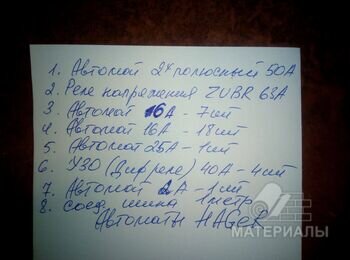 1. Автомат 2х полюсный 50А
2. Реле напряжения ZUBR 63А
3. Автомат 16А - 7шт
4. Автомат 16А - 18шт
5. Автомат 25А - 1шт
6. УЗО (Дифреле) 40А - 4шт
7. Автомат 2А - 1шт
8. соед. шина 1метр
Автоматы HAGER
МАТЕРИАЛЫ